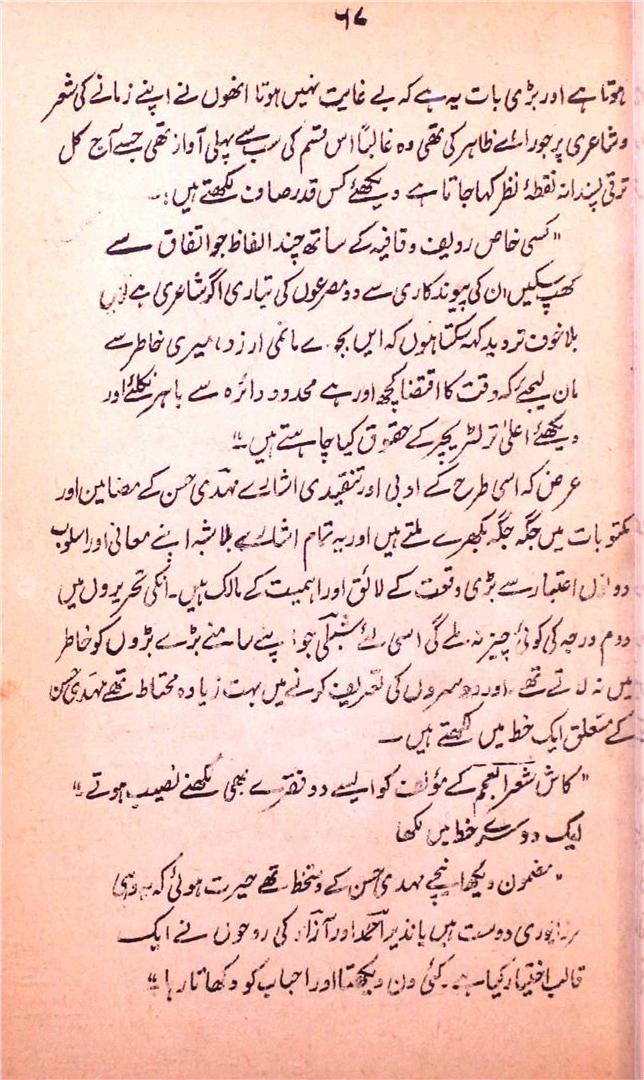 ۶۷
ہوتا ہے اور بڑی بات یہ ہے کہ بے غایت نہیں ہوتا انھوں نے اپنے زمانے کی شعر
و شاعری پر جو رائے ظاہر کی تھی وہ غالباً اس قسم کی سب سے پہلی آواز تھی جسے آج کل
ترقی پسندانہ نقطۂ نظر کہا جاتا ہے دیکھئے کس قدر صاف لکھتے ہیں :۔
"کسی خاص ردیف و قافیہ کے ساتھ چند الفاظ جو اتفاق سے
کھپ سکیں ان کی پیوند کاری سے دو مصرعوں کی تیاری اگر شاعری ہے تو میں
بلا خوف تردید کہہ سکتا ہوں کہ ایں بجوے ما نمی ارزد، میری خاطر سے
مان لیجئے کہ وقت کا اقتضا کچھ اور ہے محدود دائرہ سے باہر نکلئے اور
دیکھئے اعلیٰ تر لٹریچر کے حقوق کیا چاہتے ہیں۔"
غرض کہ اسی طرح کے ادبی اور تنقیدی اشارے مہدی حسن کے مضامین اور
مکتوبات میں جگہ جگہ بکھرے ملتے ہیں اور یہ تمام اشارے بلا شبہ اپنے معانی اور اسلوب
دونوں اعتبار سے بڑی وقعت کے لائق اور اہمیت کے مالک ہیں۔ انکی تحریروں میں
دوم درجہ کی کوئی چیز نہ ملے گی اسی لئے شبلی جو اپنے سامنے بڑے بڑوں کو خاطر
میں نہ لاتے تھے۔ اور دوسروں کی تعریف کرنے میں بہت زیادہ محتاط تھے مہدی حسن
کے متعلق ایک خط میں لکھتے ہیں ۔
"کاش شعر العجم کے مؤلف کو ایسے دو فقرے بھی لکھنے نصیب ہوتے۔"
ایک دوسرے خط میں لکھا
"مضمون دیکھا نیچے مہدی حسن کے دستخط تھے حیرت ہوئی کہ یہ وہی
مرزاپوری دوست ہیں یا نذیر احمد اور آزاد کی روحوں نے ایک
قالب اختیار کیا ہے۔ کئی دن دیکھتا اور احباب کو دکھاتا رہا۔"